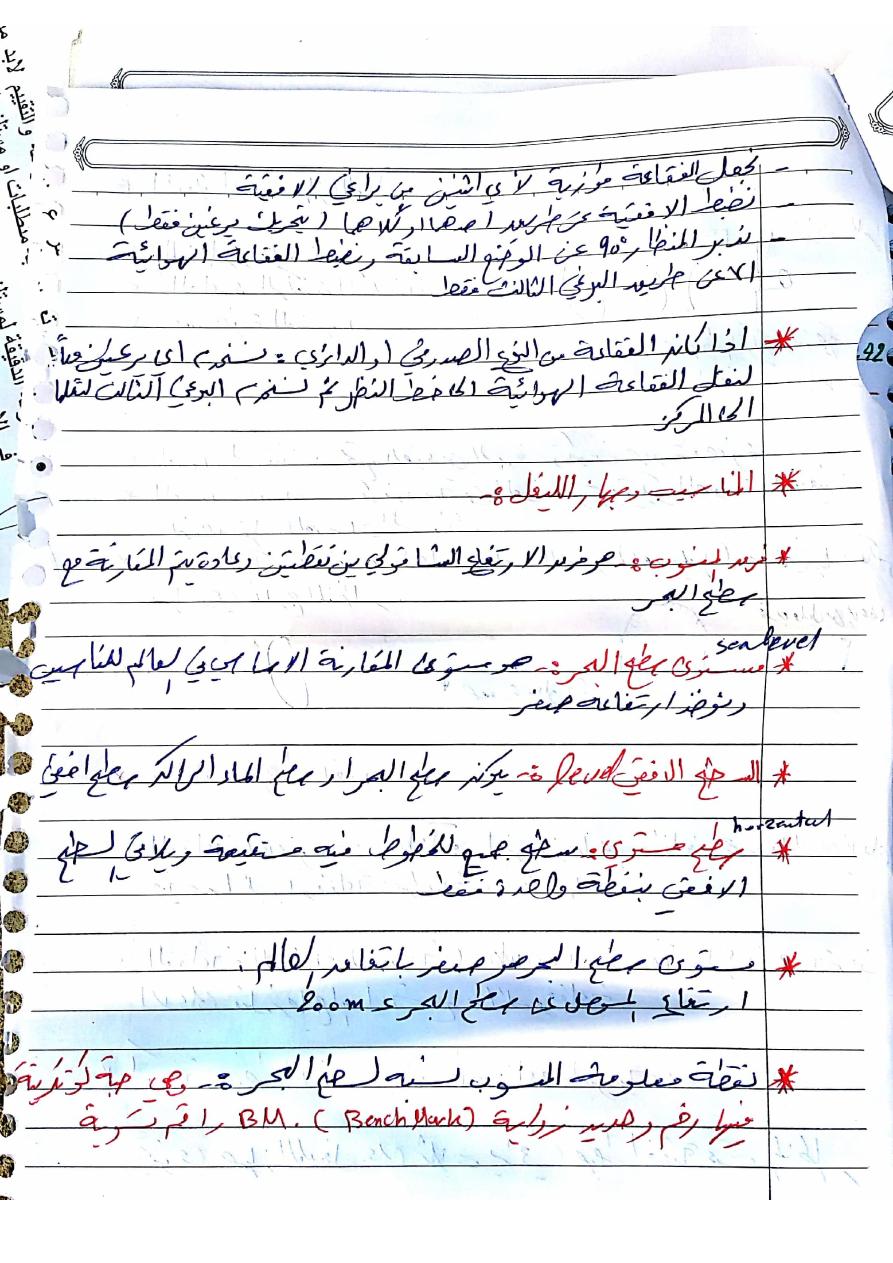 - نجعل الفقاعة موازية لأي اثنين من براغي الافقية
- نضبط الافقية عن طريق احدهما او كلاهما (بتحريك برغيين فقط)
- ندير المنظار 90° عن الوضع السابق ونضبط الفقاعة الهوائية
الا عن طريق البرغي الثالث فقط
* اذا كانت الفقاعة من النوع الصندوقي او الدائري : نستخدم اي برغيين معاً
لنقل الفقاعة الهوائية الى خط النظر ثم نستخدم البرغي الثالث لنقلها
الى المركز
* المناسيب وجهاز الليفل :-
* فرق المنسوب :- هو فرق الارتفاع الشاقولي بين نقطتين وعادة يتم المقارنة مع
سطح البحر
sea level
* مستوى سطح البحر :- هو مستوى المقارنة الاساسي في العالم للمناسيب
ويؤخذ ارتفاعه صفر
* السطح الافقي level :- يكون سطح البحر او سطح الماء الراكد سطح افقي
horzontal
* سطح مستوي : سطح جميع الخطوط فيه مستقيمة ويلاقي السطح
الافقي بنقطة واحدة فقط
* مستوى سطح البحر هو صفر باتفاق العالم .
ارتفاع الموصل عن سطح البحر = 200m
* نقطة معلومة المنسوب نسبه لسطح البحر :- وهي صبة كونكريتية
فيها رقم وحديد زواية (Bench Mark) BM. راقم تسوية
92